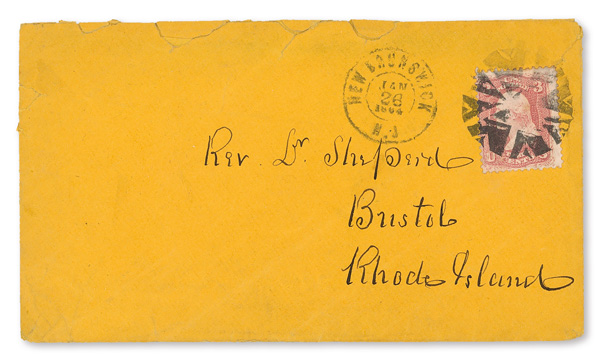 NEW BRUNSWICK
JAN
26
1864
N.J
3
Rev. Dr Sheperd
Bristol
Rhode Island